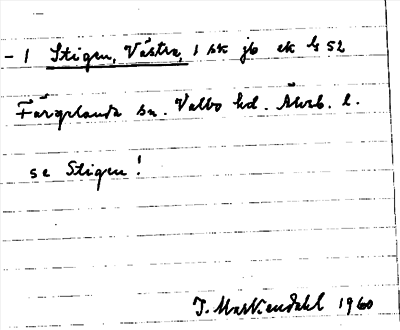 - 1 Stigen, Västra, 1 sk jb ek bs 52
Färgelanda sn. Valbo hd. Älvsb. l.
se Stigen!
1960